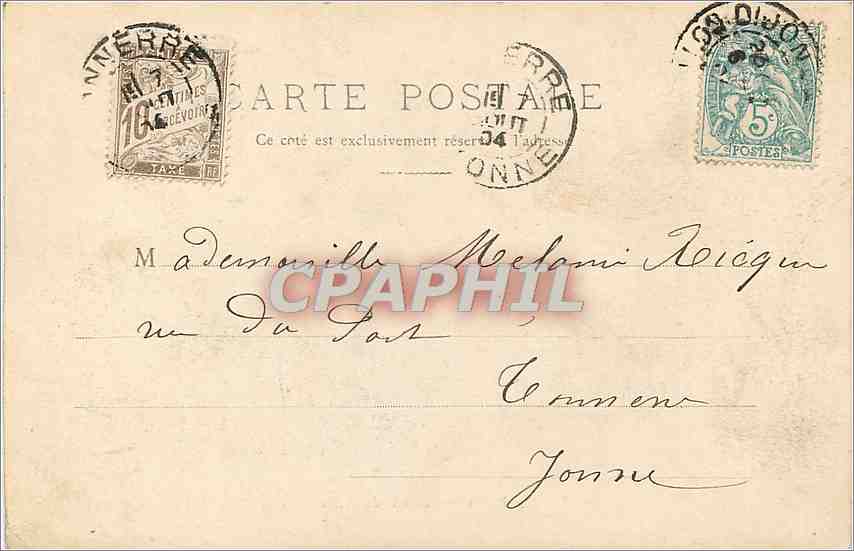 TONNERRE
7
AOUT
04
YONNE
10 CENTIMES
A PERCEVOIR
TAXE
RF
DIJON
5c
POSTES
CARTE POSTALE
Ce coté est exclusivement réservé à l'adresse
Mademoiselle Melanie
rue du Port
Tonnerre
Yonne
CPAPHIL